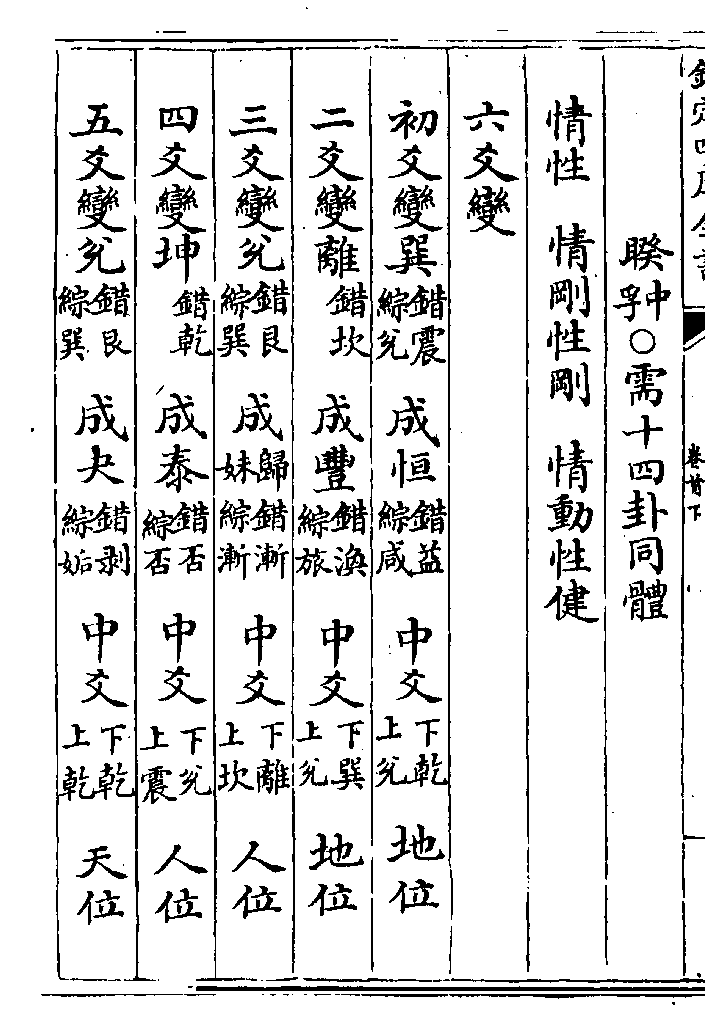 欽定四庫全書
卷首下
睽中孚○需十四卦同體
情性　情剛性剛　情動性健
六爻變
初爻變巽錯震綜兌　成恒錯益綜咸　中爻下乾上兌　地位
二爻變離錯坎　成豐錯渙綜旅　中爻下巽上兌　地位
三爻變兌錯艮綜巽　成歸妹錯漸綜漸　中爻下離上坎　人位
四爻變坤錯乾　成泰錯否綜否　中爻下兌上震　人位
五爻變兌錯艮綜巽　成夬錯剥綜姤　中爻下乾上乾　天位